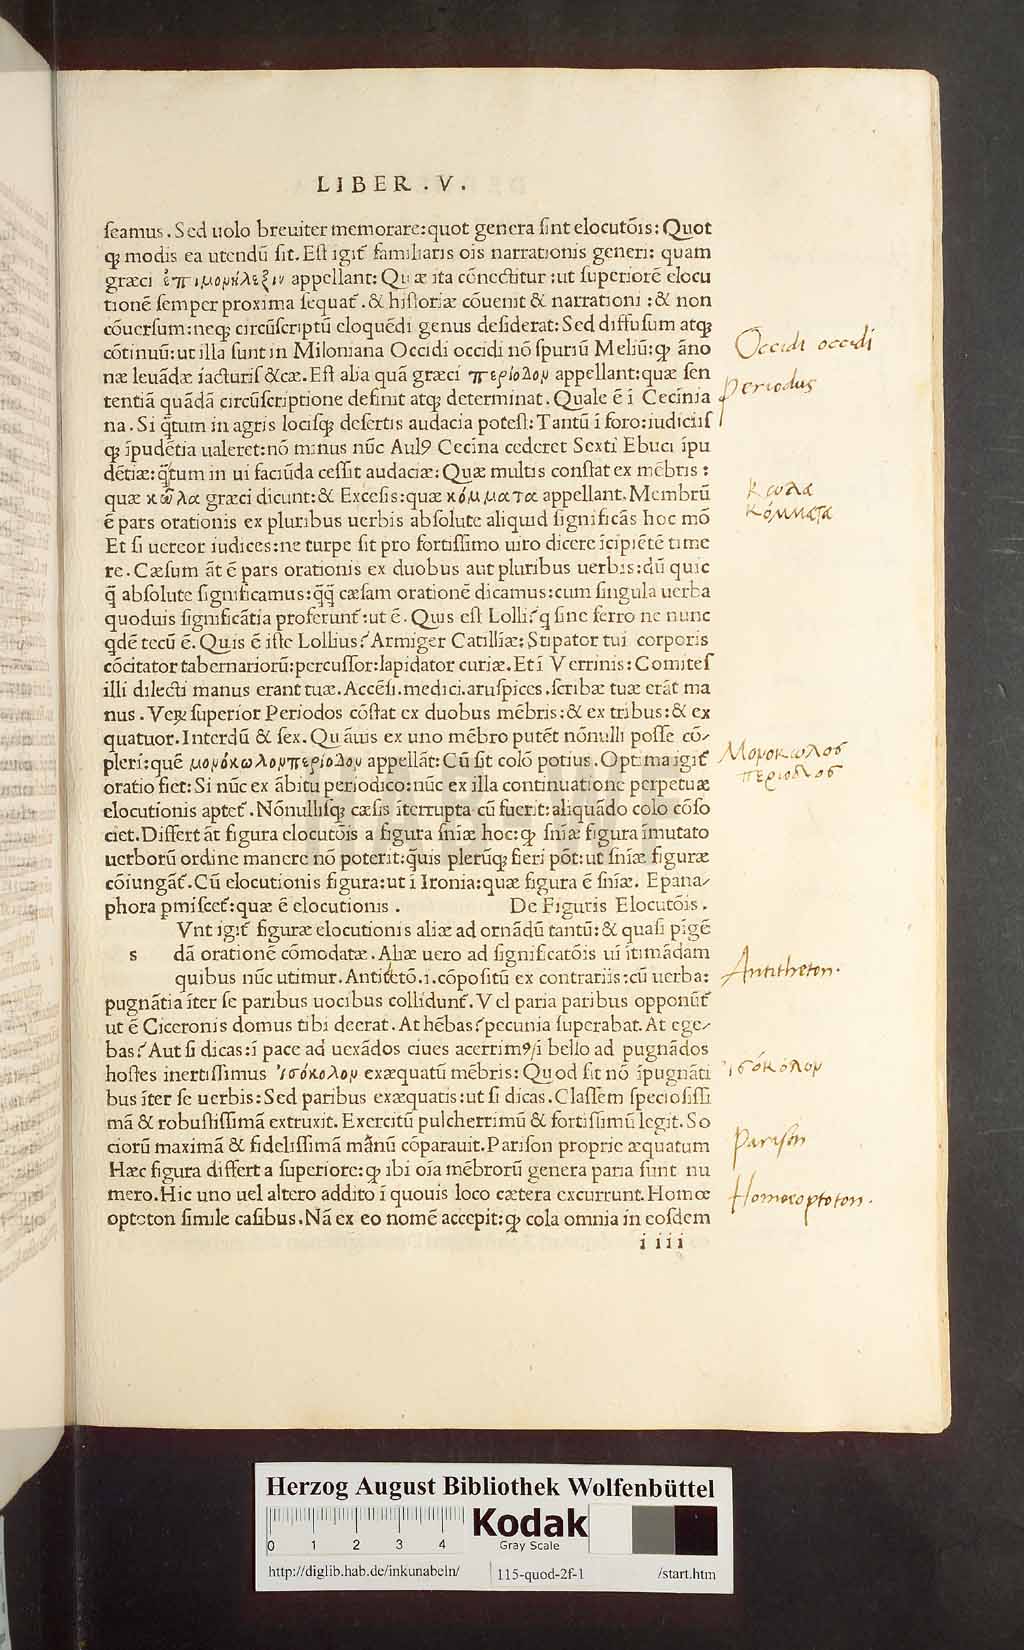 LIBER . V .
ſeamus . Sed uolo breuiter memorare: quot genera ſint elocutõis: Quot
qꝫ modis ea utendũ ſit. Eſt igit̃ familiaris oĩs narrationis generi: quam
græci ἐπιμονήλεξιν appellant: Quæ ita cõnectitur : ut ſuperiorẽ elocu
tionẽ ſemper proxima ſequat̃ . & hiſtoriæ cõuenit & narrationi : & non
cõuerſum: neqꝫ circũſcriptũ eloquẽdi genus deſiderat: Sed diffuſum atqꝫ
cõtinuũ: ut illa ſunt in Miloniana Occidi occidi nõ ſpuriũ Meliũ: qꝫ ãno
næ leuãdæ iacturiſ &cæ. Eſt alia quã græci περίοδον appellant: quæ ſen
tentiã quãdã circũſcriptione definit atqꝫ determinat . Quale ẽ ĩ Cecinia
na . Si q̃tum in agris lociſqꝫ deſertis audacia poteſt: Tantũ ĩ foro: iudiciiſ
qꝫ ĩpudẽtia ualeret: nõ minus nũc Aulꝰ Cecina cederet Sexti Ebuci ĩpu
dẽtiæ: q̃tum in ui faciũda ceſſit audaciæ: Quæ multis conſtat ex mẽbris :
quæ κῶλα græci dicunt: & Exceſis: quæ κόμματα appellant. Membrũ
ẽ pars orationis ex pluribus uerbis abſolute aliquid ſignificãs hoc mõ
Et ſi uereor iudices: ne turpe ſit pro fortiſſimo uiro dicere ĩcipiẽtẽ time
re . Cæſum ãt ẽ pars orationis ex duobus aut pluribus uerbis: dũ quic
q̃ abſolute ſignificamus: q̃q̃ cæſam orationẽ dicamus: cum ſingula uerba
quoduis ſignificãtia proferunt̃ : ut ẽ . Quis eſt Lolli? q ſine ferro ne nunc
qdẽ tecũ ẽ. Quis ẽ iſte Lollius? Armiger Catilliæ: Stipator tui corporis
cõcitator tabernariorũ: percuſſor: lapidator curiæ. Et ĩ Verrinis: Comiteſ
illi dilecti manus erant tuæ. Accẽſi . medici . aruſpices . ſcribæ tuæ erãt ma
nus . Veꝝ ſuperior Periodos cõſtat ex duobus mẽbris: & ex tribus: & ex
quatuor. Interdũ & ſex. Quãuis ex uno mẽbro putẽt nõnulli poſſe cõ-
pleri: quẽ μονόκωλονπερίοδον appellãt: Cũ ſit colõ potius . Optima igit̃
oratio fiet: Si nũc ex ãbitu periodico: nũc ex illa continuatione perpetuæ
elocutionis aptet̃ . Nõnulliſqꝫ cæſis ĩterrupta cũ fuerit: aliquãdo colo cõſo
ciet. Differt ãt figura elocutõis a figura ſñiæ hoc: qꝫ ſñiæ figura ĩmutato
uerborũ ordine manere nõ poterit: q̃uis plerũqꝫ fieri põt: ut ſñiæ figuræ
cõiungãt̃ . Cũ elocutionis figura: ut ĩ Ironia: quæ figura ẽ ſñiæ. Epana-
phora ꝑmiſcet̃: quæ ẽ elocutionis .
De Figuris Elocutõis .
Vnt igit̃ figuræ elocutionis aliæ ad ornãdũ tantũ: & quaſi pĩgẽ
s dã orationẽ cõmodatæ . Aliæ uero ad ſignificatõis uĩ ĩtimãdam
quibus nũc utimur. Antitetõ . i . cõpoſitũ ex contrariis: cũ uerba:
pugnãtia ĩter ſe paribus uocibus collidunt̃. Vel paria paribus opponũt̃
ut ẽ Ciceronis domus tibi deerat. At hẽbas? pecunia ſuperabat. At ege-
bas? Aut ſi dicas: ĩ pace ad uexãdos ciues acerrimꝰ/ĩ bello ad pugnãdos
hoſtes inertiſſimus ἰσόκολον exæquatũ mẽbris: Quod ſit nõ ĩpugnãti
bus ĩter ſe uerbis: Sed paribus exæquatis: ut ſi dicas . Claſſem ſpecioſiſſi
mã & robuſtiſſimã extruxit. Exercitũ pulcherrimũ & fortiſſimũ legit. So
ciorũ maximã & fideliſſimã mãnũ cõparauit. Pariſon proprie æquatum
Hæc figura differt a ſuperiore: qꝫ ibi oĩa mẽbrorũ genera paria ſunt nu
mero. Hic uno uel altero addito ĩ quouis loco cætera excurrunt. Homœ
optoton ſimile caſibus . Nã ex eo nomẽ accepit: qꝫ cola omnia in eoſdem
i iii
Occidi occidi
Periodus
κωλα
κόμματα
Μονοκωλος
περιοδος
Antitheton .
ἰσόκολον
Pariſon
Homoeoptoton .
HAB WF
Herzog August Bibliothek Wolfenbüttel
0 1 2 3 4
Kodak
Gray Scale
http://diglib.hab.de/inkunabeln/ 115-quod-2f-1 /start.htm